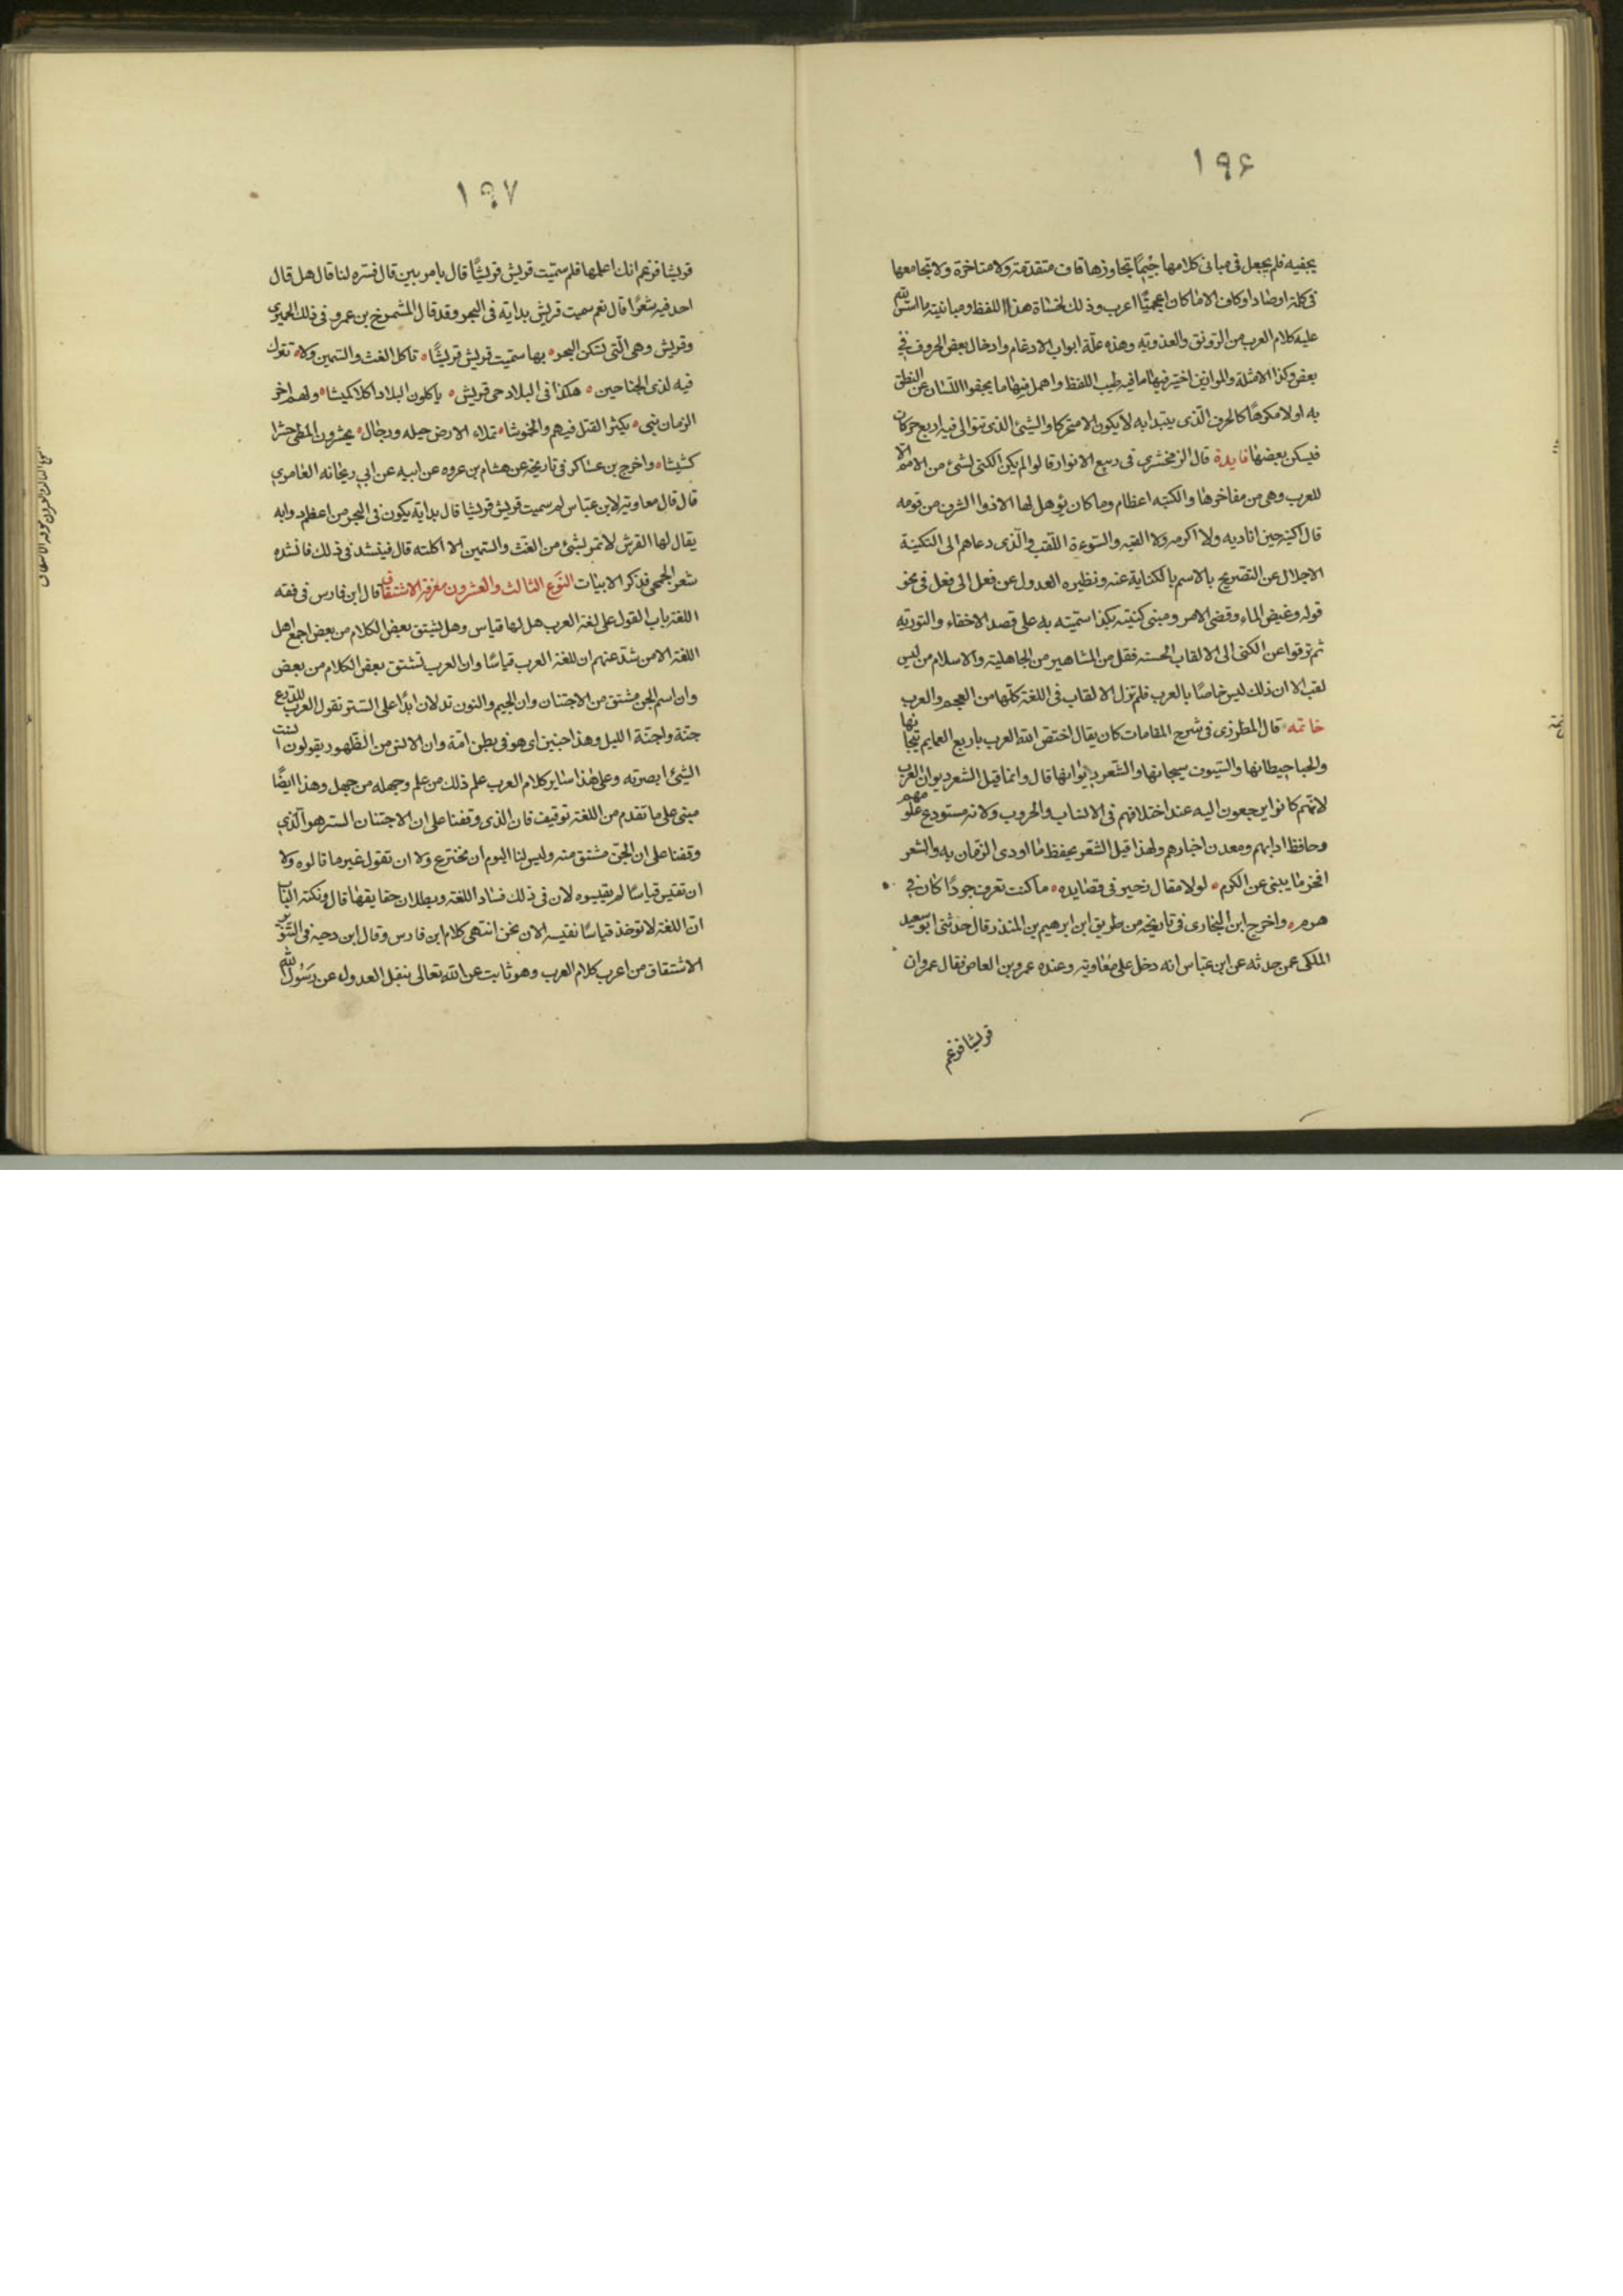 ١٩۶
يجفيه فلم يجعل فى مبانى كلامها جيما تجاوزها قاف متقدمة ولا متاخرة ولا تجامعها
فى كلمة او صاد او كاف الا ما كان اعجميًّا اعرب وذلك لجساة هذا اللفظ ومباينته ما اسس الله
عليه كلام العرب من الرونق والعذوبة وهذه علّة ابواب الادغام وادخال بعض الحروف فى
بعض وكذا الامثلة والموازين اختير فيها ما فيه طيب اللفظ واهمل منها ما يجفوا اللسان عن النطق
به اولا مكرهًا كالحرف الّذى يبتدا به لا يكون الا متحركا والشئ الذى تتوالى فيه اربع حركات
فيسكن بعضها فايدة قال الزمخشرى فى ربيع الانوار قالوا لم يكن الكنى لشئ من الامم الا
للعرب وهى من مفاخرها والكنيه اعظام وما كان يؤهل لها الا ذوا الشرف من قومه
قال اكنيه حين اناديه ولا اكرمه ولا القبه والسوءة اللقب والّذى دعاهم الى التكنية
الاجلال عن التصريح بالاسم بالكناية عنه ونظيره العدول عن فعل الى فعل فى نحو
قوله وغيض الماء وقضى الامر ومبنى كنيته بكذا سميته به على قصد الاخفاء والتورية
ثم ترقوا عن الكنى الى الالقاب الحسنه فقل من المشاهير من الجاهلية والاسلام من ليس
لقب الا ان ذلك ليس خاصًا بالعرب فلم تزل الالقاب فى اللغة كلّها من العجم والعرب
خاتمه قال المطرزى فى شرح المقامات كان يقال اختص الله العرب باربع العمايم تيجانها
والحبا حيطانها والسيوف سيجانها والشعر ديوانها قال وانما قيل الشعر ديوان العرب
لانهم كانوا يرجعون اليه عند اختلافهم فى الانساب والحروب ولانه مستودع علومهم
وحافظ ادابهم ومعدن اخبارهم ولهذا قيل الشعر يحفظ ما اودى الزمان به والشعر
افخر ما يبنى عن الكرم لولا مقال زهير فى قصايده ما كنت تعرف جودًا كان فى
هرم واخرج ابن النجارى فى تاريخه من طريق ابن ابرهيم بن المنذر قال حدثنى ابو سعيد
الملكى عمن حدثه عن ابن عباس انه دخل على معاوية وعنده عمرو بن العاص فقال عمرو ان
قريشا تزعم
١٩٧
قريشا تزعم انك اعلمها فلم سمّيت قريش قريشًا قال بامر بين قال فسّره لنا قال هل قال
احد فيه شعرًا قال نعم سميت قريش بدابة فى البحر وقد قال المشمرخ بن عمرو فى ذلك الحميرى
وقريش وهى الّتى تسكن البحر بها سمّيت قريش قريشًا تاكل الغث والسمين ولا تترك
فيه لذى الجناحين هكذا فى البلاد حى قريش ياكلون البلاد اكلا كميشا ولهم اخر
الزمان نبى يكثر القتل فيهم والخموشا تملاء الارض خيله ورجال يحشرون المطى حشرا
كشيشا واخرج بن عساكر فى تاريخه عن هشام بن عروه عن ابيه عن ابى ريحانه العامرى
قال قال معاوية لابن عبّاس لم سميت قريش قريشا قال بدابة يكون فى البحر من اعظم دوابه
يقال لها القرش لا تمر بشئ من الغث والسمين الا اكلته قال فينشد فى ذلك فانشده
شعر الجمحى فذكر الابيات النوع الثالث والعشرون معرفة الاشتقاق قال ابن فارس فى فقه
اللغة باب القول على لغة العرب هل لها قياس وهل يشتق بعض الكلام من بعض اجمع اهل
اللغة الا من شذ عنهم ان للغة العرب قياسًا وان العرب تشتق بعض الكلام من بعض
وان اسم الجن مشتق من الاجتنان وان الجيم والنون تدلان ابدًا على الستر تقول العرب للدرع
جنّة واجنّة الليل وهذا جنين اى هو فى بطن امّه وان الانس من الظهور يقولون انست
الشئ ابصرته وعلى هذا ساير كلام العرب علم ذلك من علم وجهله من جهل وهذا ايضًا
مبنى على ما تقدم من اللغة توقيف فان الذى وقفنا على ان الاجتنان الستر هو الّذى
وقفنا على ان الجن مشتق منه وليس لنا اليوم ان نخترع ولا ان نقول غير ما قالوه ولا
ان نقيس قياسًا لم يقيسوه لان فى ذلك فساد اللغة وبطلان حقايقها قال ونكتة الباب
انّ اللغة لا توخذ قياسًا نقيسه الان نحن انتهى كلام ابن فارس وقال ابن دحيه فى التنوير
الاشتقاق من اعرب كلام العرب وهو ثابت عن الله تعالى بنقل العدول عن رسول الله